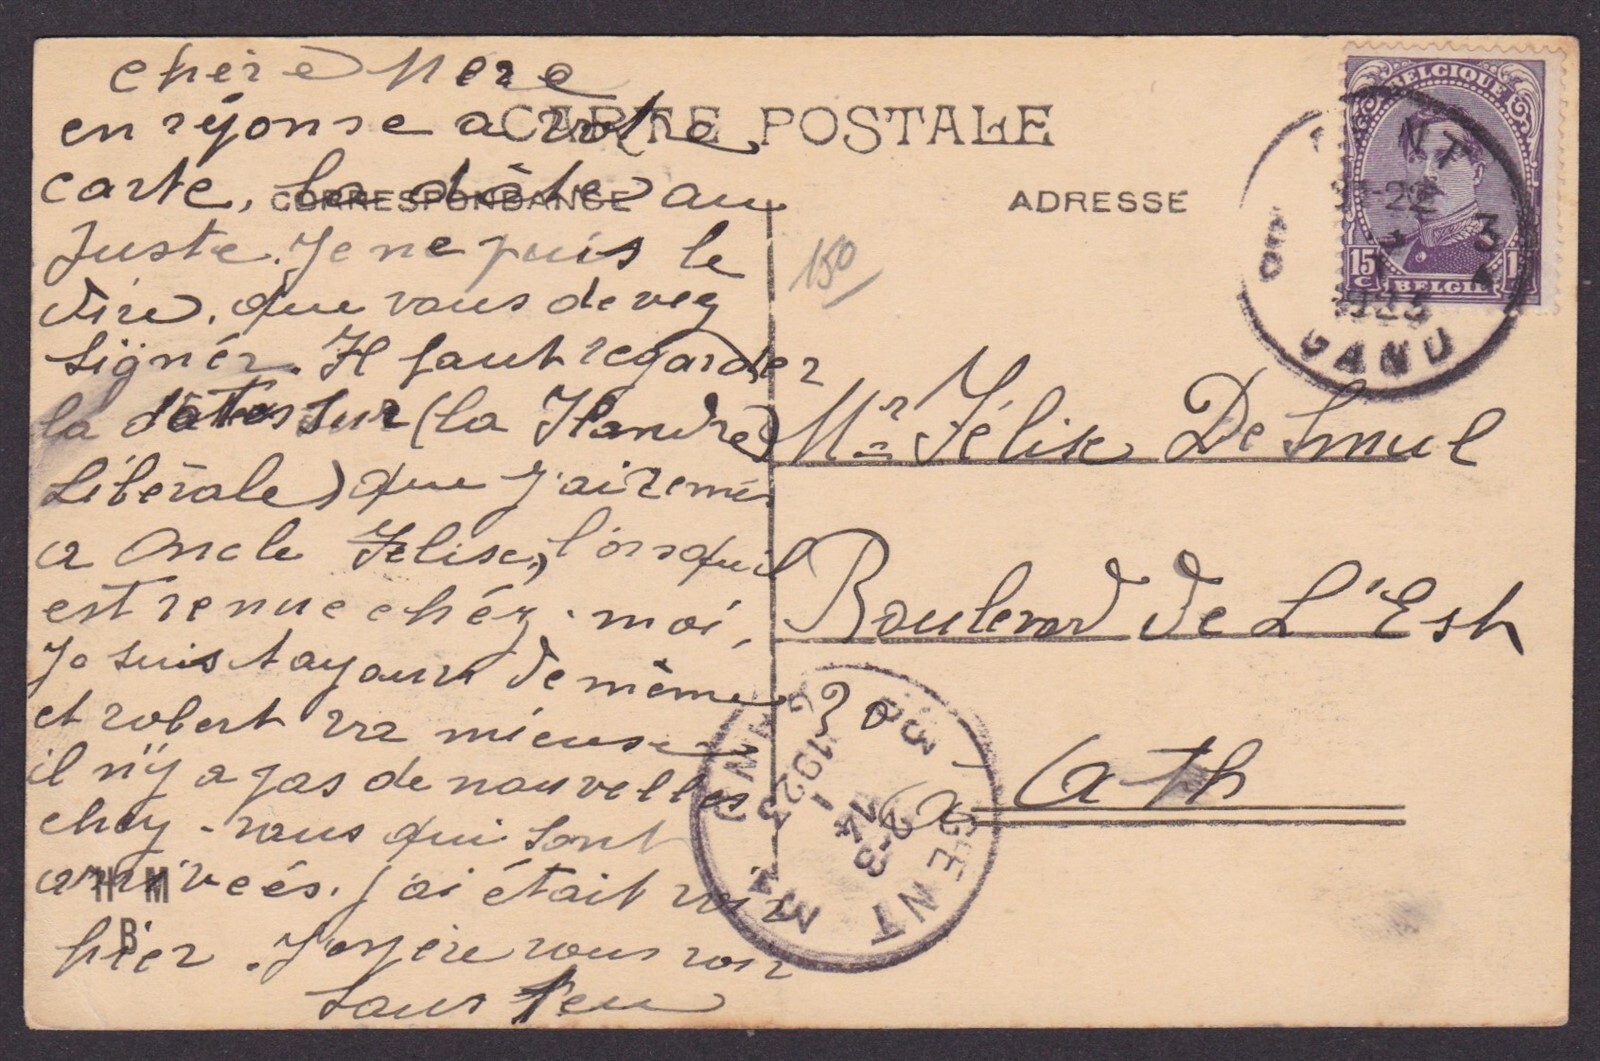 chère Mere
en réponse a votre
CARTE POSTALE
carte, la date au
CORRESPONDANCE
ADRESSE
juste. Je ne puis le
dire. que vous devez
signér. Il faut regarder
la dates sur (la Flandre
Libérale) que j'ai remis
a Oncle Félise, l'orsqu'il
est venue chéz-moi.
Je suis toujours de même
et robert va mieuse
il n'y a pas de nouvelles
chez-vous qui sont
arrivéés. j'ai était voir
hier. J'espère vous voir
sous peu
H M
B
150
BELGIQUE
15 C
BELGIE
GAND
1923
Mr Félise De Smul
Boulevard de L'Est
30
(a Ath
GENT
GAND
1923